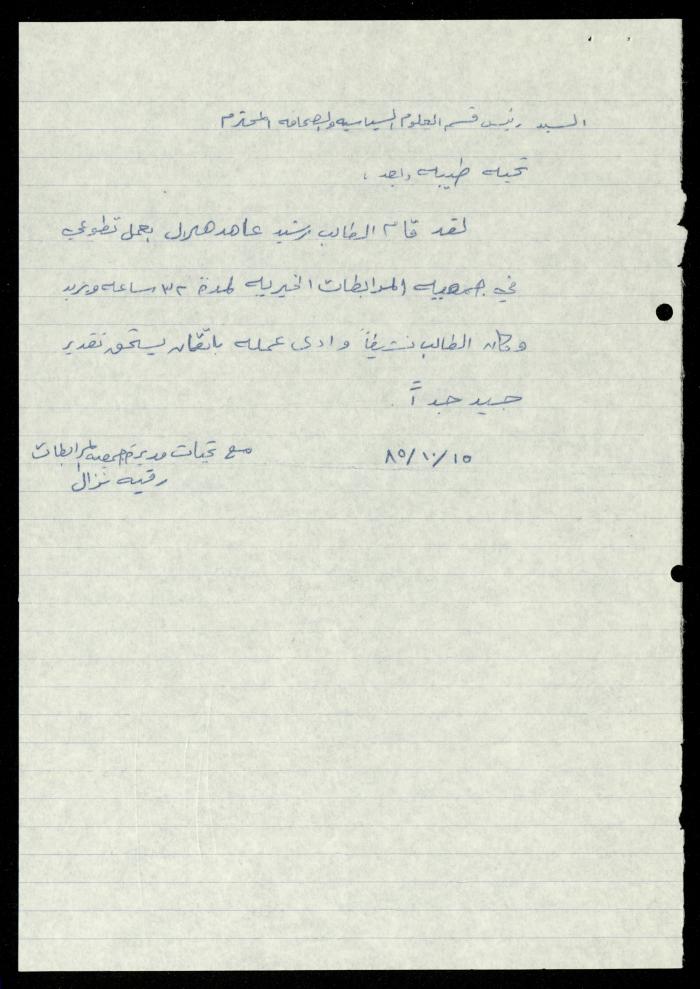 السيد رئيس قسم العلوم السياسيه والصحافه المحترم
تحيه طيبه وبعد ،
لقد قام الطالب رشيد عاهد هلال بعمل تطوعي
في جمعيه المرابطات الخيريه لمدة ٣٢ ساعه ويزيد
وكان الطالب نشيطاً وادى عمله باتقان يستحق تقدير
جيد جداً .
٨٥/١٠/١٥
مع تحيات مديرة جمعيه المرابطات
رقيه نزال